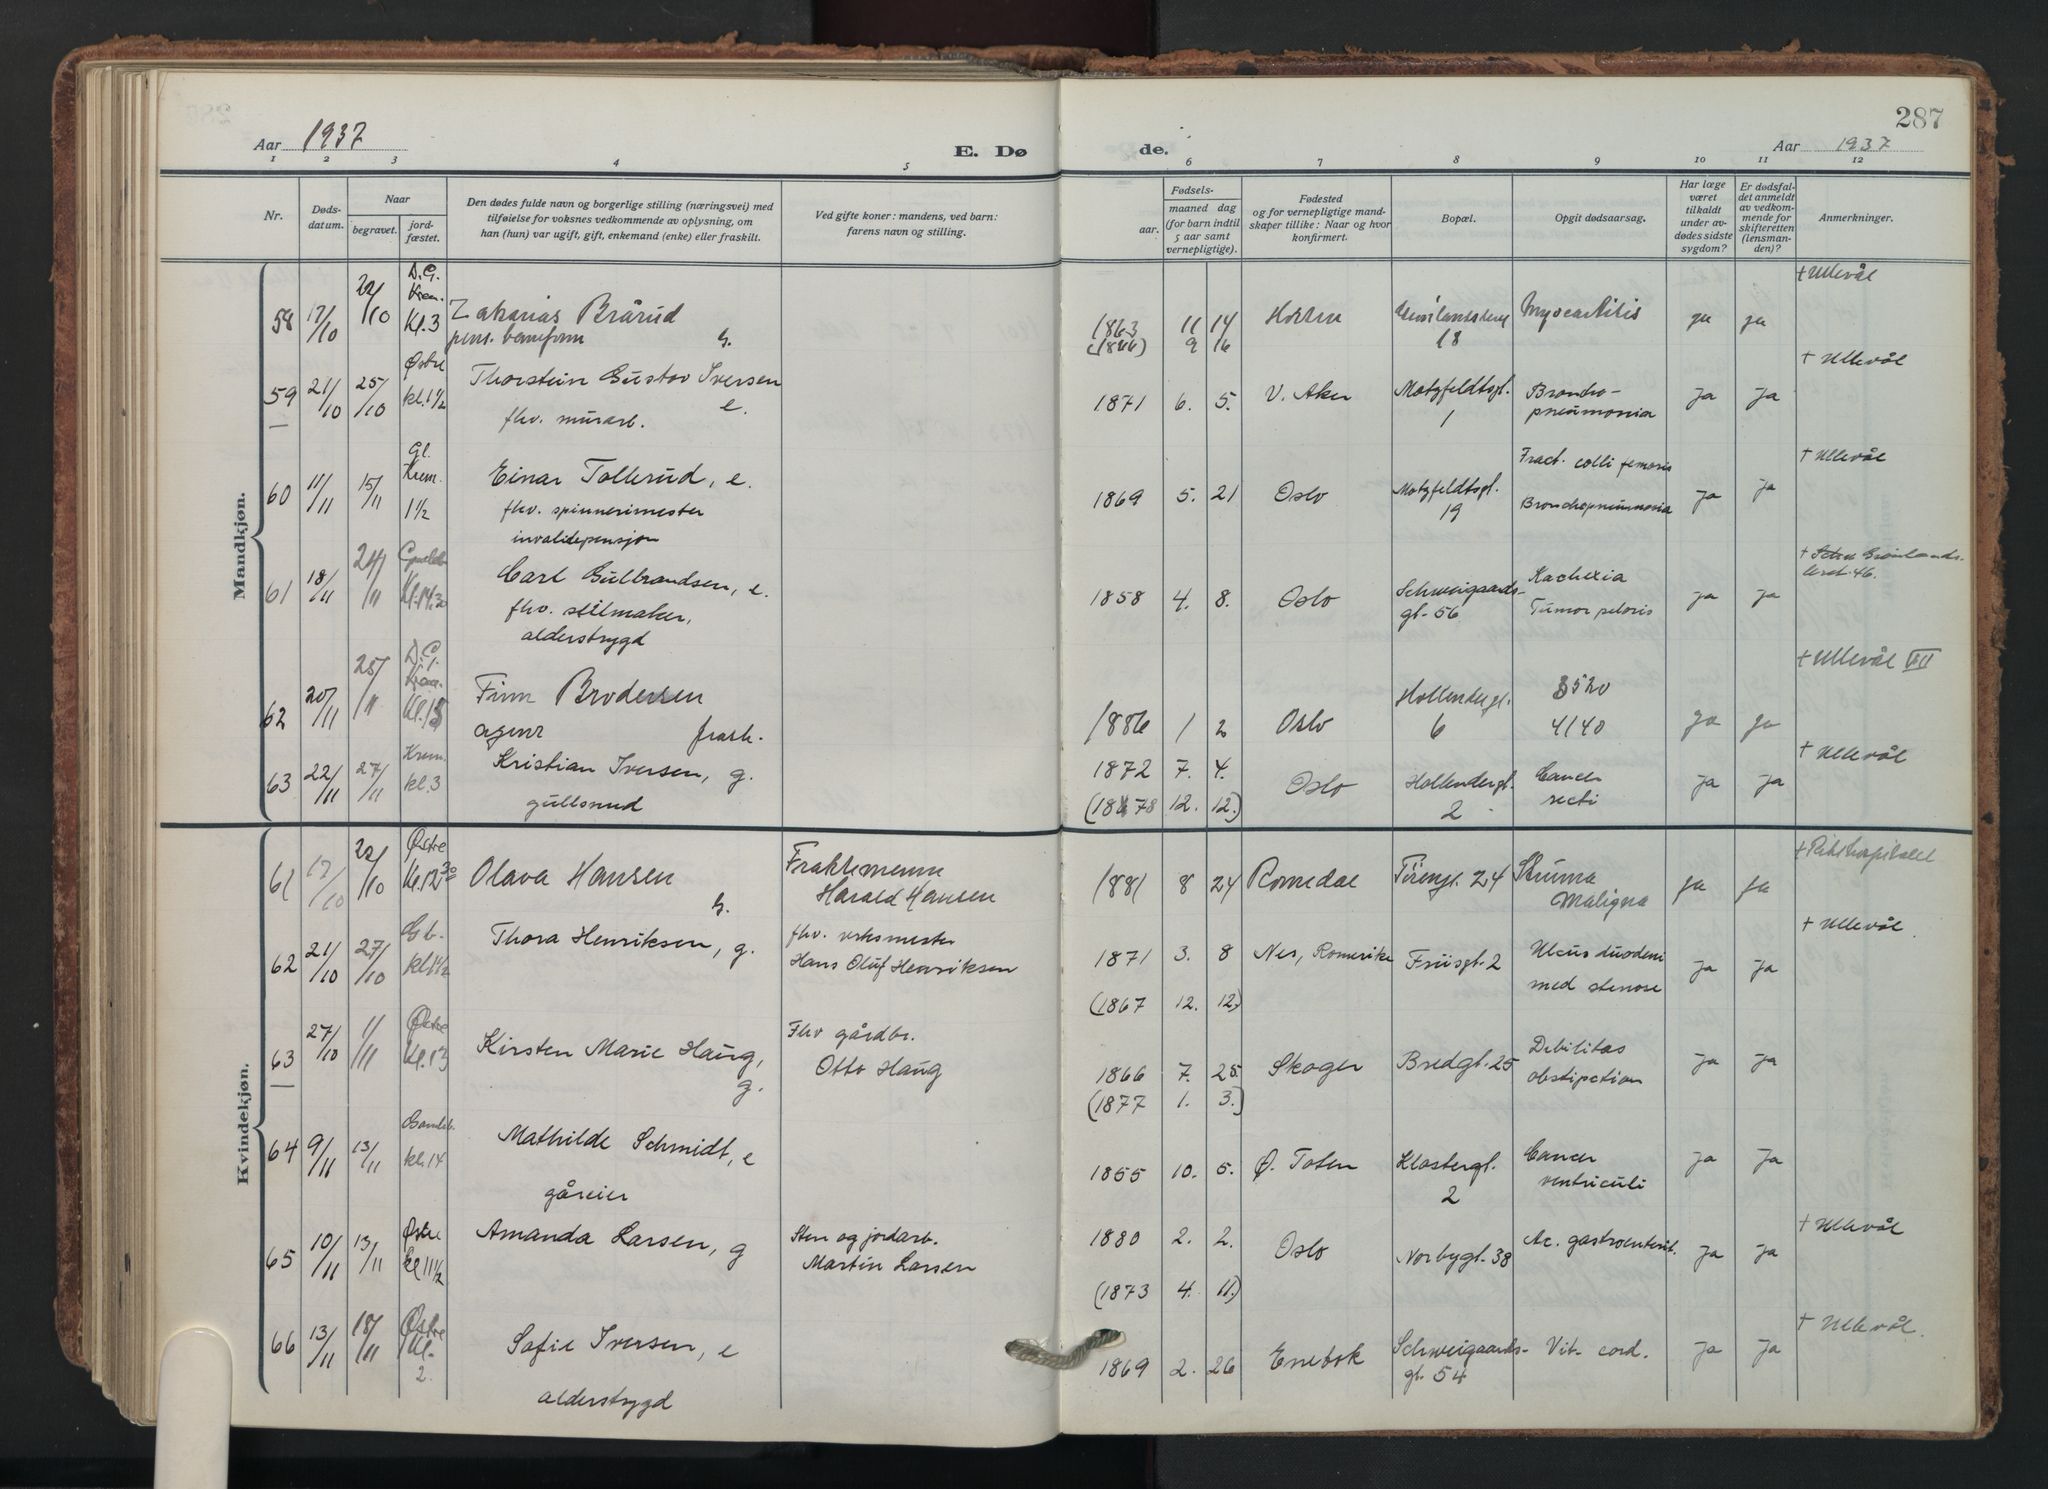 287
Aar 1937
E. Dø
de.
Aar 1937
1 2 3 4 5 6 7 8 9 10 11 12
Nr.
Døds-
datum.
Naar
begravet.
jord-
fæstet.
Den dødes fulde navn og borgerlige stilling (næringsvei) med
tilføielse for voksnes vedkommende av oplysning, om
han (hun) var ugift, gift, enkemand (enke) eller fraskilt.
Ved gifte koner: mandens, ved barn:
farens navn og stilling.
Fødsels-
aar.
maaned dag
(for barn indtil
5 aar samt
vernepligtige).
Fødested
og for vernepligtige mand-
skaper tillike: Naar og hvor
konfirmert.
Bopæl.
Opgit dødsaarsag.
Har læge
været
tilkaldt
under av-
dødes sidste
sygdom?
Er dødsfal-
det anmeldt
av vedkom-
mende for
skifteretten
(lensman-
den)?
Anmerkninger.
Mandkjøn.
58 17/10 22/10 D.G. Krem. Kl. 3 Zakarias Brårud
pens. g.
1863 11 14
(1866) 9 16
18 Myocarditis ja ja + Ullevål
59 21/10 25/10 Østre kl. 1 1/2 Thorstein Gustav Iversen
e.
fhv. murarb.
1871 6. 5. V. Aker Motzfeldtsgt. 1 Broncho-
pneumonia ja ja + Ullevål
60 11/11 15/11 Gl. Krem. 1 1/2 Einar Tollerud, e.
fhv. spinnerimester
invalidepensjon
1869 5. 21 Oslo Motzfeldtsgt. 19 Fract. colli femoris
Bronchopneumonia ja ja + Ullevål
61 18/11 24/11 Kl. 14,30 Carl Gulbrandsen, e.
fhv. seilmaker,
alderstrygd
1858 4. 8. Oslo Schweigaards-
gt. 56 Kachexia
Tumor pelvis ja ja + Grønlands-
leret 46.
62 20/11 25/11 D.G. Krem. Finn Brodersen
agent frask.
1886 1 2 Oslo Hollendergt. 6 3520
4140 ja ja + Ullevål VII
63 22/11 27/11 Krem. kl. 3 Kristian Iversen, g.
gullsmed
1872 7. 4.
(1878 12. 12.)
Oslo Hollendergt. 2 Cancer
recti ja ja + Ullevål
Kvindekjøn.
61 17/10 22/10 Østre Kl. 12 30 Olava Hansen
g.
Harald Hansen
1881 8 24 Romedal 24 Struma
Maligna ja ja + Rikshospitalet
62 21/10 27/10 Gb. kl. 1 1/2 Thora Henriksen, g.
fhv. verksmester
Hans Oluf Henriksen
1871 3. 8
(1867 12. 12.)
Nes, Romerike Friisgt. 2 Ulcus duodeni
med stenose ja ja + Ullevål.
63 27/10 1/11 Østre Kl. 13 Kirsten Marie Haug,
g.
Fhv gårdbr.
Otto Haug
1866 7. 25.
(1877 1. 3.)
Skoger Bredgt. 25 Debilitas
obstipation ja ja
64 9/11 13/11 kl. 14 Mathilde Schmidt, e
gåreier
1855 10. 5. Ø. Toten Klostergt. 2 Cancer
ventriculi ja ja
65 10/11 13/11 Østre kl 11 1/2 Amanda Larsen, g
Sten og jordarb.
Martin Larsen
1880 2. 2.
(1873 4. 11.)
Oslo Norbygt. 38 Ac. gastroenterit. ja ja + Ullevål
66 13/11 18/11 Østre Kl. 2. Safie Iversen, e
alderstrygd
1869 2. 26 Enebak Schweigaards-
gt. 54 Vit. cord. ja ja + Ullevål.